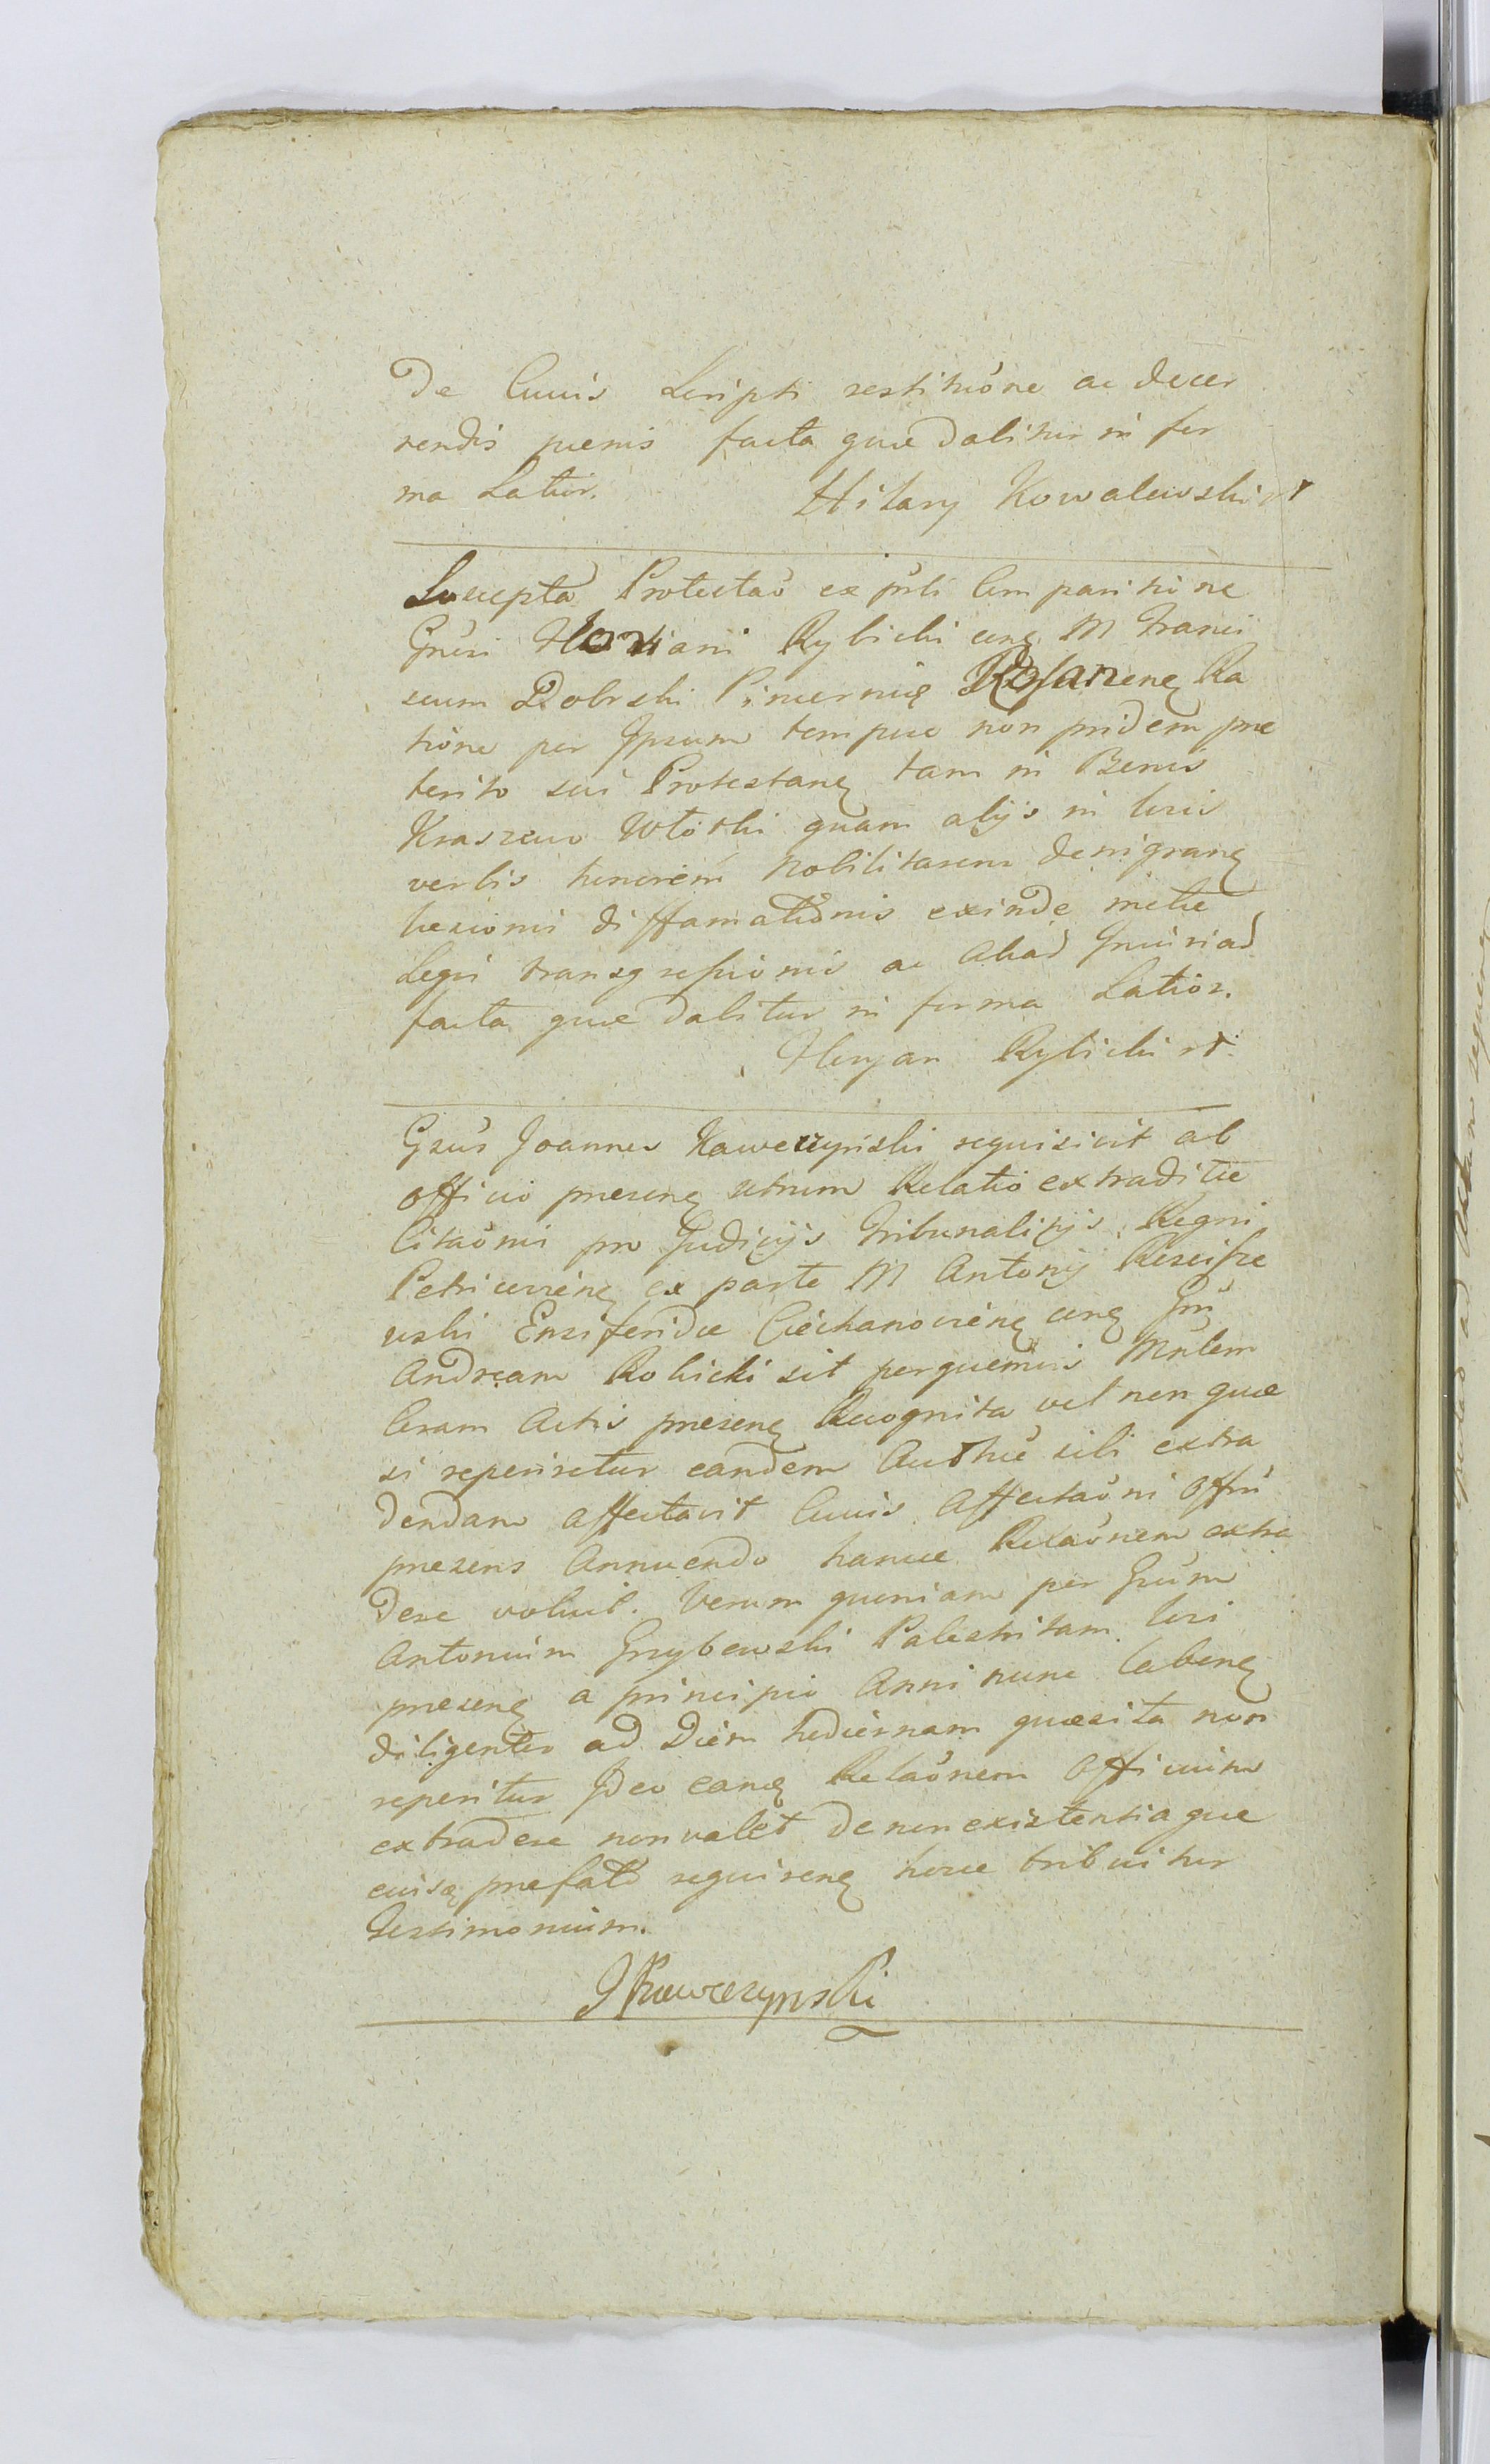 De Cuius Scripti restitu͠one ac decer
nendis poenis facta quae dabitur in for
ma Latior.
Hilary Kowalewski
Suscepta Protestao ex pnti Comparitione
Gnsi Floriani Rybicki cong M Franci
scum Dobrski Pincernię Rosaneng Ra
tione per Ipsum tempore non pridem prae
terito sui Protestanę tam in Bonis
Kraszewo Wtóski quam alijs in locis
verbis honorem Nobilitarem denigranę
laesionis diffamationis exinde
Legis transgressionis ac aliad
facta quae dabitur in forma Latior.
Floryan Rybicki
Gnsus Joannes Kawczynski requisivit ab
officio praesenę utrum Relatio extraditae
Citaonis pro Judicijs Tribunalitijs Regni
Petricovienę ex parte M Antonij
Ensiferidae Ciechanovienę cong Gn
Andream Robicki sit perquemvis Mnlem
Coram Actis praesenę Recognita vel non quae
si reperiretur eandem Authce sibi extra
dendam affectavit Cuius Affectaoni Offm
praesens Annuendo hancce Relaonem extra
dere voluit. Verum quoniam per Gnsum
Antonium Grzybowski Palestritam loci
praesenę a principio Anni nunc labenę
diligenter ad Diem hodiernam quaesita non
reperitur Ideo eanę Relaonem Officium
extradere non valet de non existentia que
eiusę praefato requirenę hocce tribuitur
Testimonium.
JKawczynski